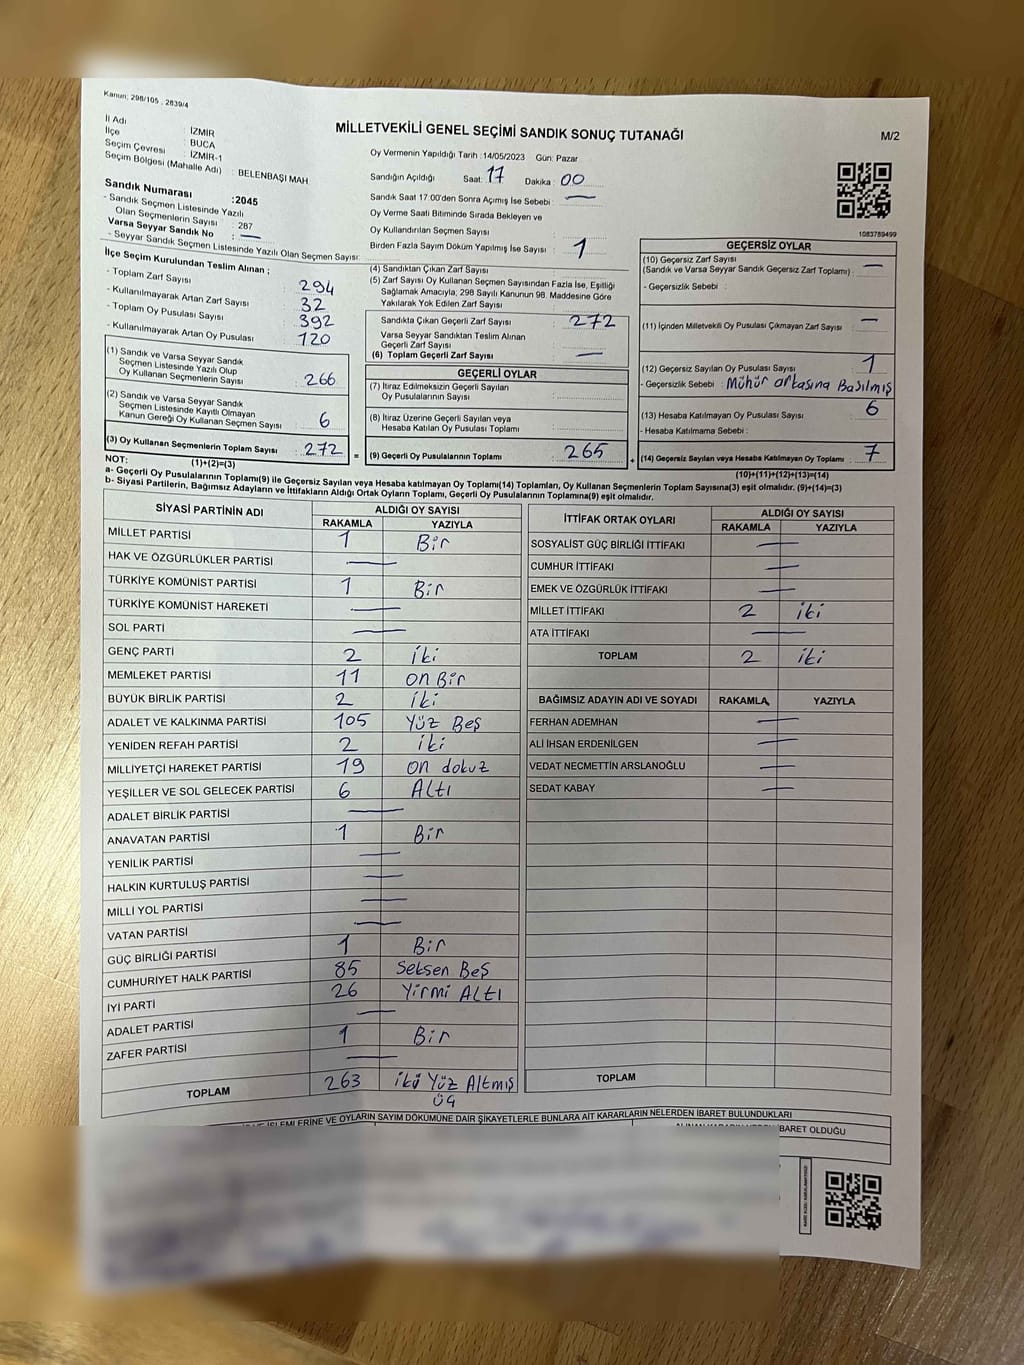 Kanun: 298/105 , 2839/4
MİLLETVEKİLİ GENEL SEÇİMİ SANDIK SONUÇ TUTANAĞI
M/2
İl Adı : İZMİR
İlçe : BUCA
Seçim Çevresi : İZMİR-1
Seçim Bölgesi (Mahalle Adı) : BELENBAŞI MAH.
Sandık Numarası :2045
- Sandık Seçmen Listesinde Yazılı
Olan Seçmenlerin Sayısı : 287
Varsa Seyyar Sandık No : —
- Seyyar Sandık Seçmen Listesinde Yazılı Olan Seçmen Sayısı:
Oy Vermenin Yapıldığı Tarih :14/05/2023 Gün: Pazar
Sandığın Açıldığı Saat: 17 Dakika : 00
Sandık Saat 17:00'den Sonra Açımış İse Sebebi : —
Oy Verme Saati Bitiminde Sırada Bekleyen ve
Oy Kullandırılan Seçmen Sayısı :
Birden Fazla Sayım Döküm Yapılmış İse Sayısı : 1
1083789499
İlçe Seçim Kurulundan Teslim Alınan ;
- Toplam Zarf Sayısı : 294
- Kullanılmayarak Artan Zarf Sayısı : 32
- Toplam Oy Pusulası Sayısı : 392
- Kullanılmayarak Artan Oy Pusulası : 120
(1) Sandık ve Varsa Seyyar Sandık
Seçmen Listesinde Yazılı Olup
Oy Kullanan Seçmenlerin Sayısı : 266
(2) Sandık ve Varsa Seyyar Sandık
Seçmen Listesinde Kayıtlı Olmayan
Kanun Gereği Oy Kullanan Seçmen Sayısı : 6
(3) Oy Kullanan Seçmenlerin Toplam Sayısı : 272 =
(1)+(2)=(3)
(4) Sandıktan Çıkan Zarf Sayısı :
(5) Zarf Sayısı Oy Kullanan Seçmen Sayısından Fazla İse, Eşitliği
Sağlamak Amacıyla, 298 Sayılı Kanunun 98. Maddesine Göre
Yakılarak Yok Edilen Zarf Sayısı :
Sandıkta Çıkan Geçerli Zarf Sayısı : 272
Varsa Seyyar Sandıktan Teslim Alınan
Geçerli Zarf Sayısı :
(6) Toplam Geçerli Zarf Sayısı : —
GEÇERLİ OYLAR
(7) İtiraz Edilmeksizin Geçerli Sayılan
Oy Pusulalarının Sayısı :
(8) İtiraz Üzerine Geçerli Sayılan veya
Hesaba Katılan Oy Pusulası Toplamı :
(9) Geçerli Oy Pusulalarının Toplamı : 265 +
GEÇERSİZ OYLAR
(10) Geçersiz Zarf Sayısı
(Sandık ve Varsa Seyyar Sandık Geçersiz Zarf Toplamı) : —
- Geçersizlik Sebebi :
(11) İçinden Milletvekili Oy Pusulası Çıkmayan Zarf Sayısı : —
(12) Geçersiz Sayılan Oy Pusulası Sayısı : 1
- Geçersizlik Sebebi : Mühür arkasına Basılmış
(13) Hesaba Katılmayan Oy Pusulası Sayısı : 6
- Hesaba Katılmama Sebebi :
(14) Geçersiz Sayılan veya Hesaba Katılmayan Oy Toplamı : 7
(10)+(11)+(12)+(13)=(14)
NOT:
a- Geçerli Oy Pusulalarının Toplamı(9) ile Geçersiz Sayılan veya Hesaba katılmayan Oy Toplamı(14) Toplamları, Oy Kullanan Seçmenlerin Toplam Sayısına(3) eşit olmalıdır. (9)+(14)=(3)
b- Siyasi Partilerin, Bağımsız Adayların ve İttifakların Aldığı Ortak Oyların Toplamı, Geçerli Oy Pusulalarının Toplamına(9) eşit olmalıdır.
SİYASİ PARTİNİN ADI ALDIĞI OY SAYISI
RAKAMLA YAZIYLA
MİLLET PARTİSİ 1 Bir
HAK VE ÖZGÜRLÜKLER PARTİSİ —
TÜRKİYE KOMÜNİST PARTİSİ 1 Bir
TÜRKİYE KOMÜNİST HAREKETİ —
SOL PARTİ —
GENÇ PARTİ 2 iki
MEMLEKET PARTİSİ 11 on Bir
BÜYÜK BİRLİK PARTİSİ 2 iki
ADALET VE KALKINMA PARTİSİ 105 Yüz Beş
YENİDEN REFAH PARTİSİ 2 iki
MİLLİYETÇİ HAREKET PARTİSİ 19 on dokuz
YEŞİLLER VE SOL GELECEK PARTİSİ 6 Altı
ADALET BİRLİK PARTİSİ —
ANAVATAN PARTİSİ 1 Bir
YENİLİK PARTİSİ —
HALKIN KURTULUŞ PARTİSİ —
MİLLİ YOL PARTİSİ —
VATAN PARTİSİ —
GÜÇ BİRLİĞİ PARTİSİ 1 Bir
CUMHURİYET HALK PARTİSİ 85 Seksen Beş
İYİ PARTİ 26 Yirmi Altı
ADALET PARTİSİ —
ZAFER PARTİSİ 1 Bir
—
TOPLAM 263 iki Yüz Altmış
üç
İTTİFAK ORTAK OYLARI ALDIĞI OY SAYISI
RAKAMLA YAZIYLA
SOSYALİST GÜÇ BİRLİĞİ İTTİFAKI —
CUMHUR İTTİFAKI —
EMEK VE ÖZGÜRLÜK İTTİFAKI —
MİLLET İTTİFAKI 2 iki
ATA İTTİFAKI —
TOPLAM 2 iki
BAĞIMSIZ ADAYIN ADI VE SOYADI RAKAMLA YAZIYLA
FERHAN ADEMHAN —
ALİ İHSAN ERDENİLGEN —
VEDAT NECMETTİN ARSLANOĞLU —
SEDAT KABAY —
TOPLAM
İŞLEMLERİNE VE OYLARIN SAYIM DÖKÜMÜNE DAİR ŞİKAYETLERLE BUNLARA AİT KARARLARIN NELERDEN İBARET BULUNDUKLARI
İBARET OLDUĞU